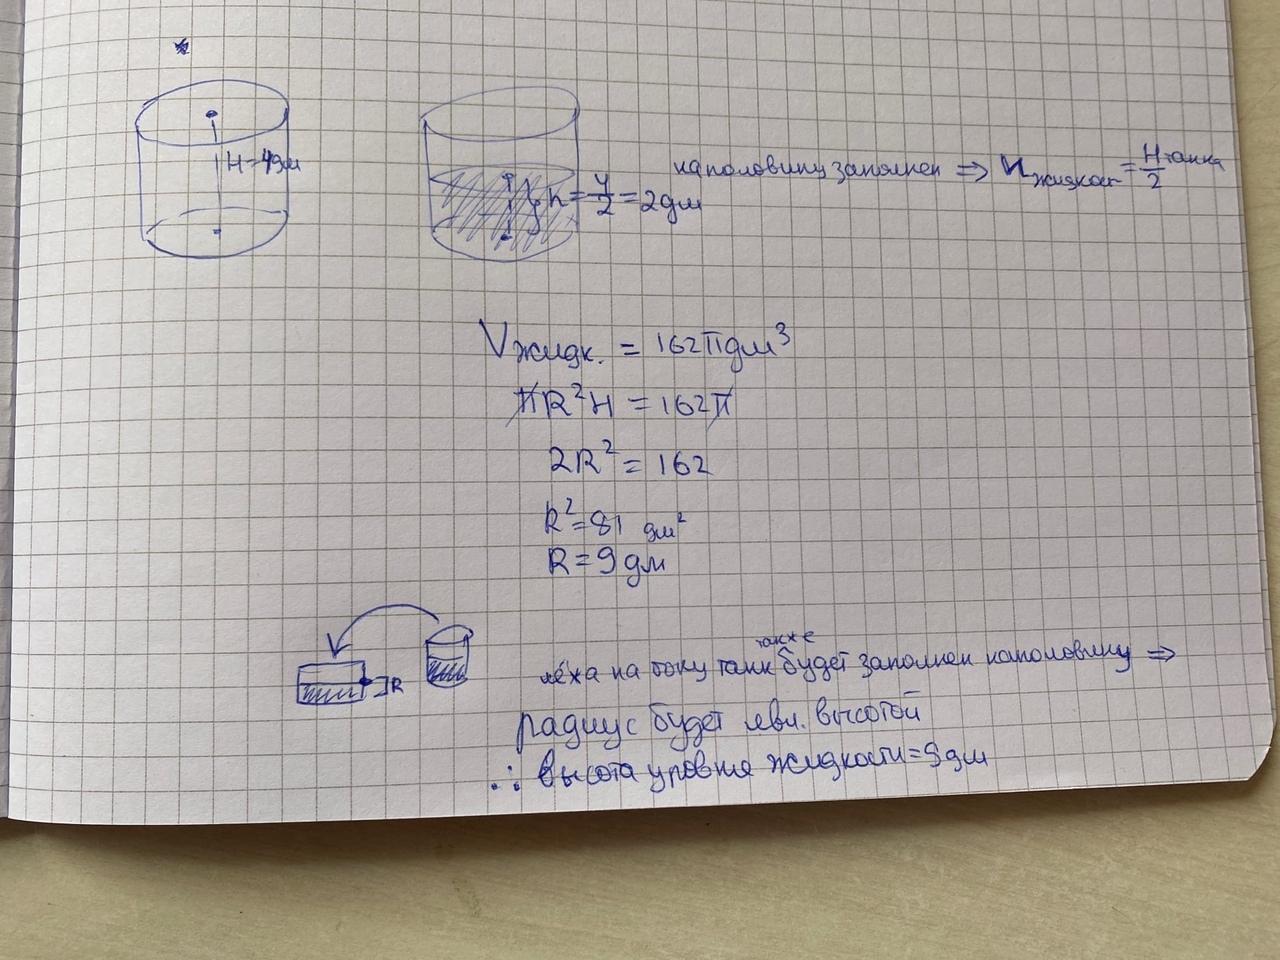 H=4дм
h = 4/2 = 2дм
наполовину заполнен ⇒ Hжидкост = Hтанка/2
Vжидк. = 162πдм³
πR²H = 162π
2R² = 162
R² = 81 дм²
R = 9 дм
R
лёжа на боку танк также будет заполнен наполовину ⇒
радиус будет явл. высотой
∴ высота уровня жидкости = 9дм